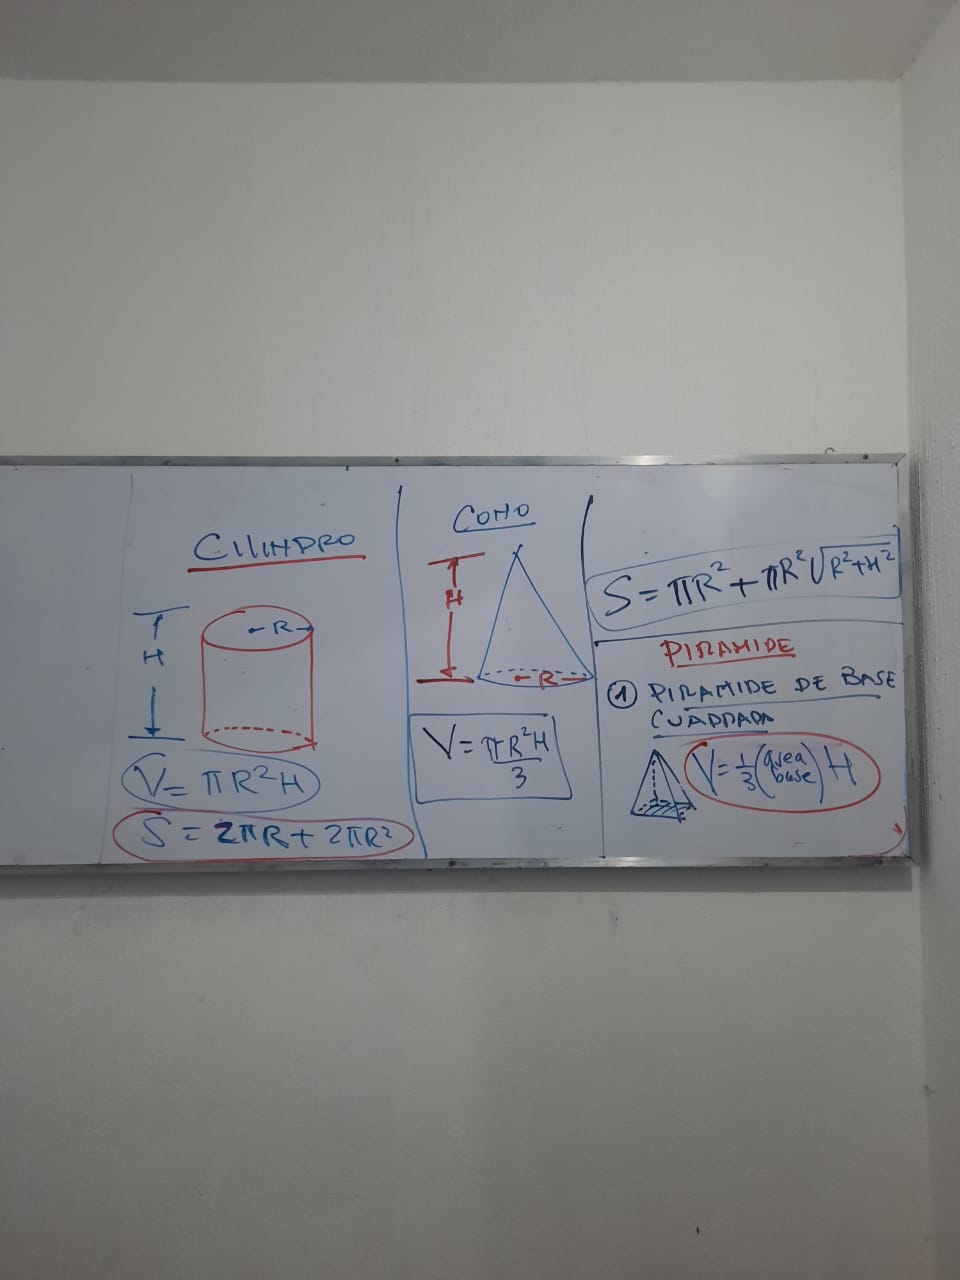 CILINDRO
H
R
V = πR²H
S = 2πR + 2πR²
CONO
H
R
V = πR²H/3
S = πR² + πR²√(R²+H²)
PIRAMIDE
① PIRAMIDE DE BASE
CUADRADA
V = 1/3 (area base) H